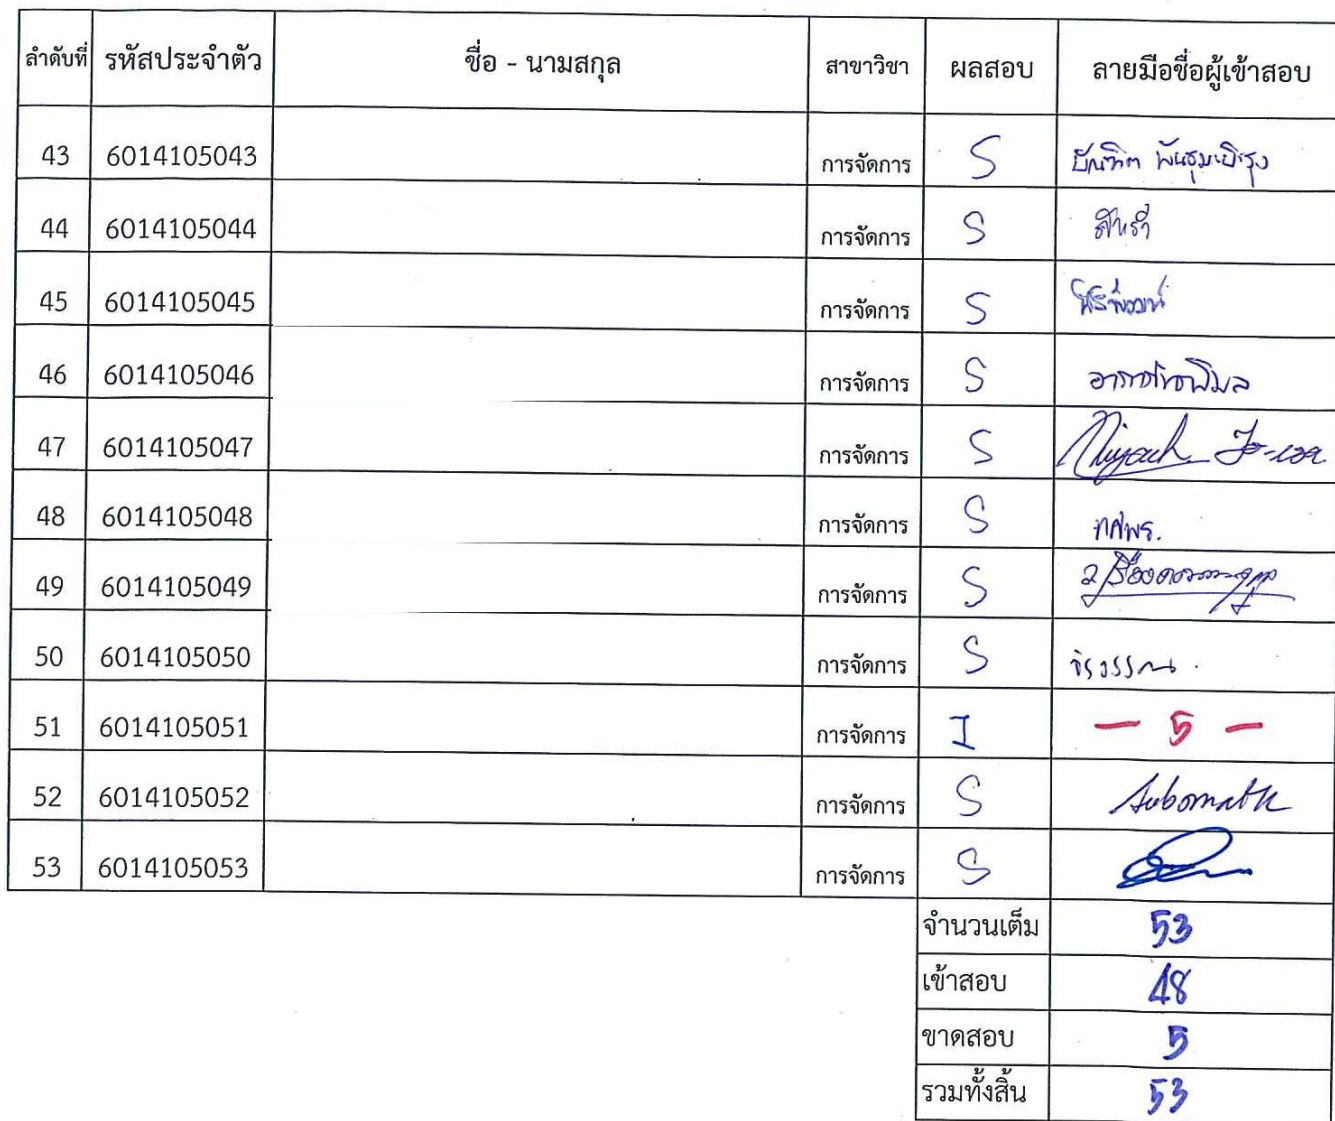 ลำดับที่ รหัสประจำตัว ชื่อ - นามสกุล สาขาวิชา ผลสอบ ลายมือชื่อผู้เข้าสอบ
43 6014105043 การจัดการ S
44 6014105044 การจัดการ S
45 6014105045 การจัดการ S
46 6014105046 การจัดการ S
47 6014105047 การจัดการ S
48 6014105048 การจัดการ S ทศพร.
49 6014105049 การจัดการ S
50 6014105050 การจัดการ S จิรวรรณ.
51 6014105051 การจัดการ I — 5 —
52 6014105052 การจัดการ S
53 6014105053 การจัดการ S
จำนวนเต็ม 53
เข้าสอบ 48
ขาดสอบ 5
รวมทั้งสิ้น 53